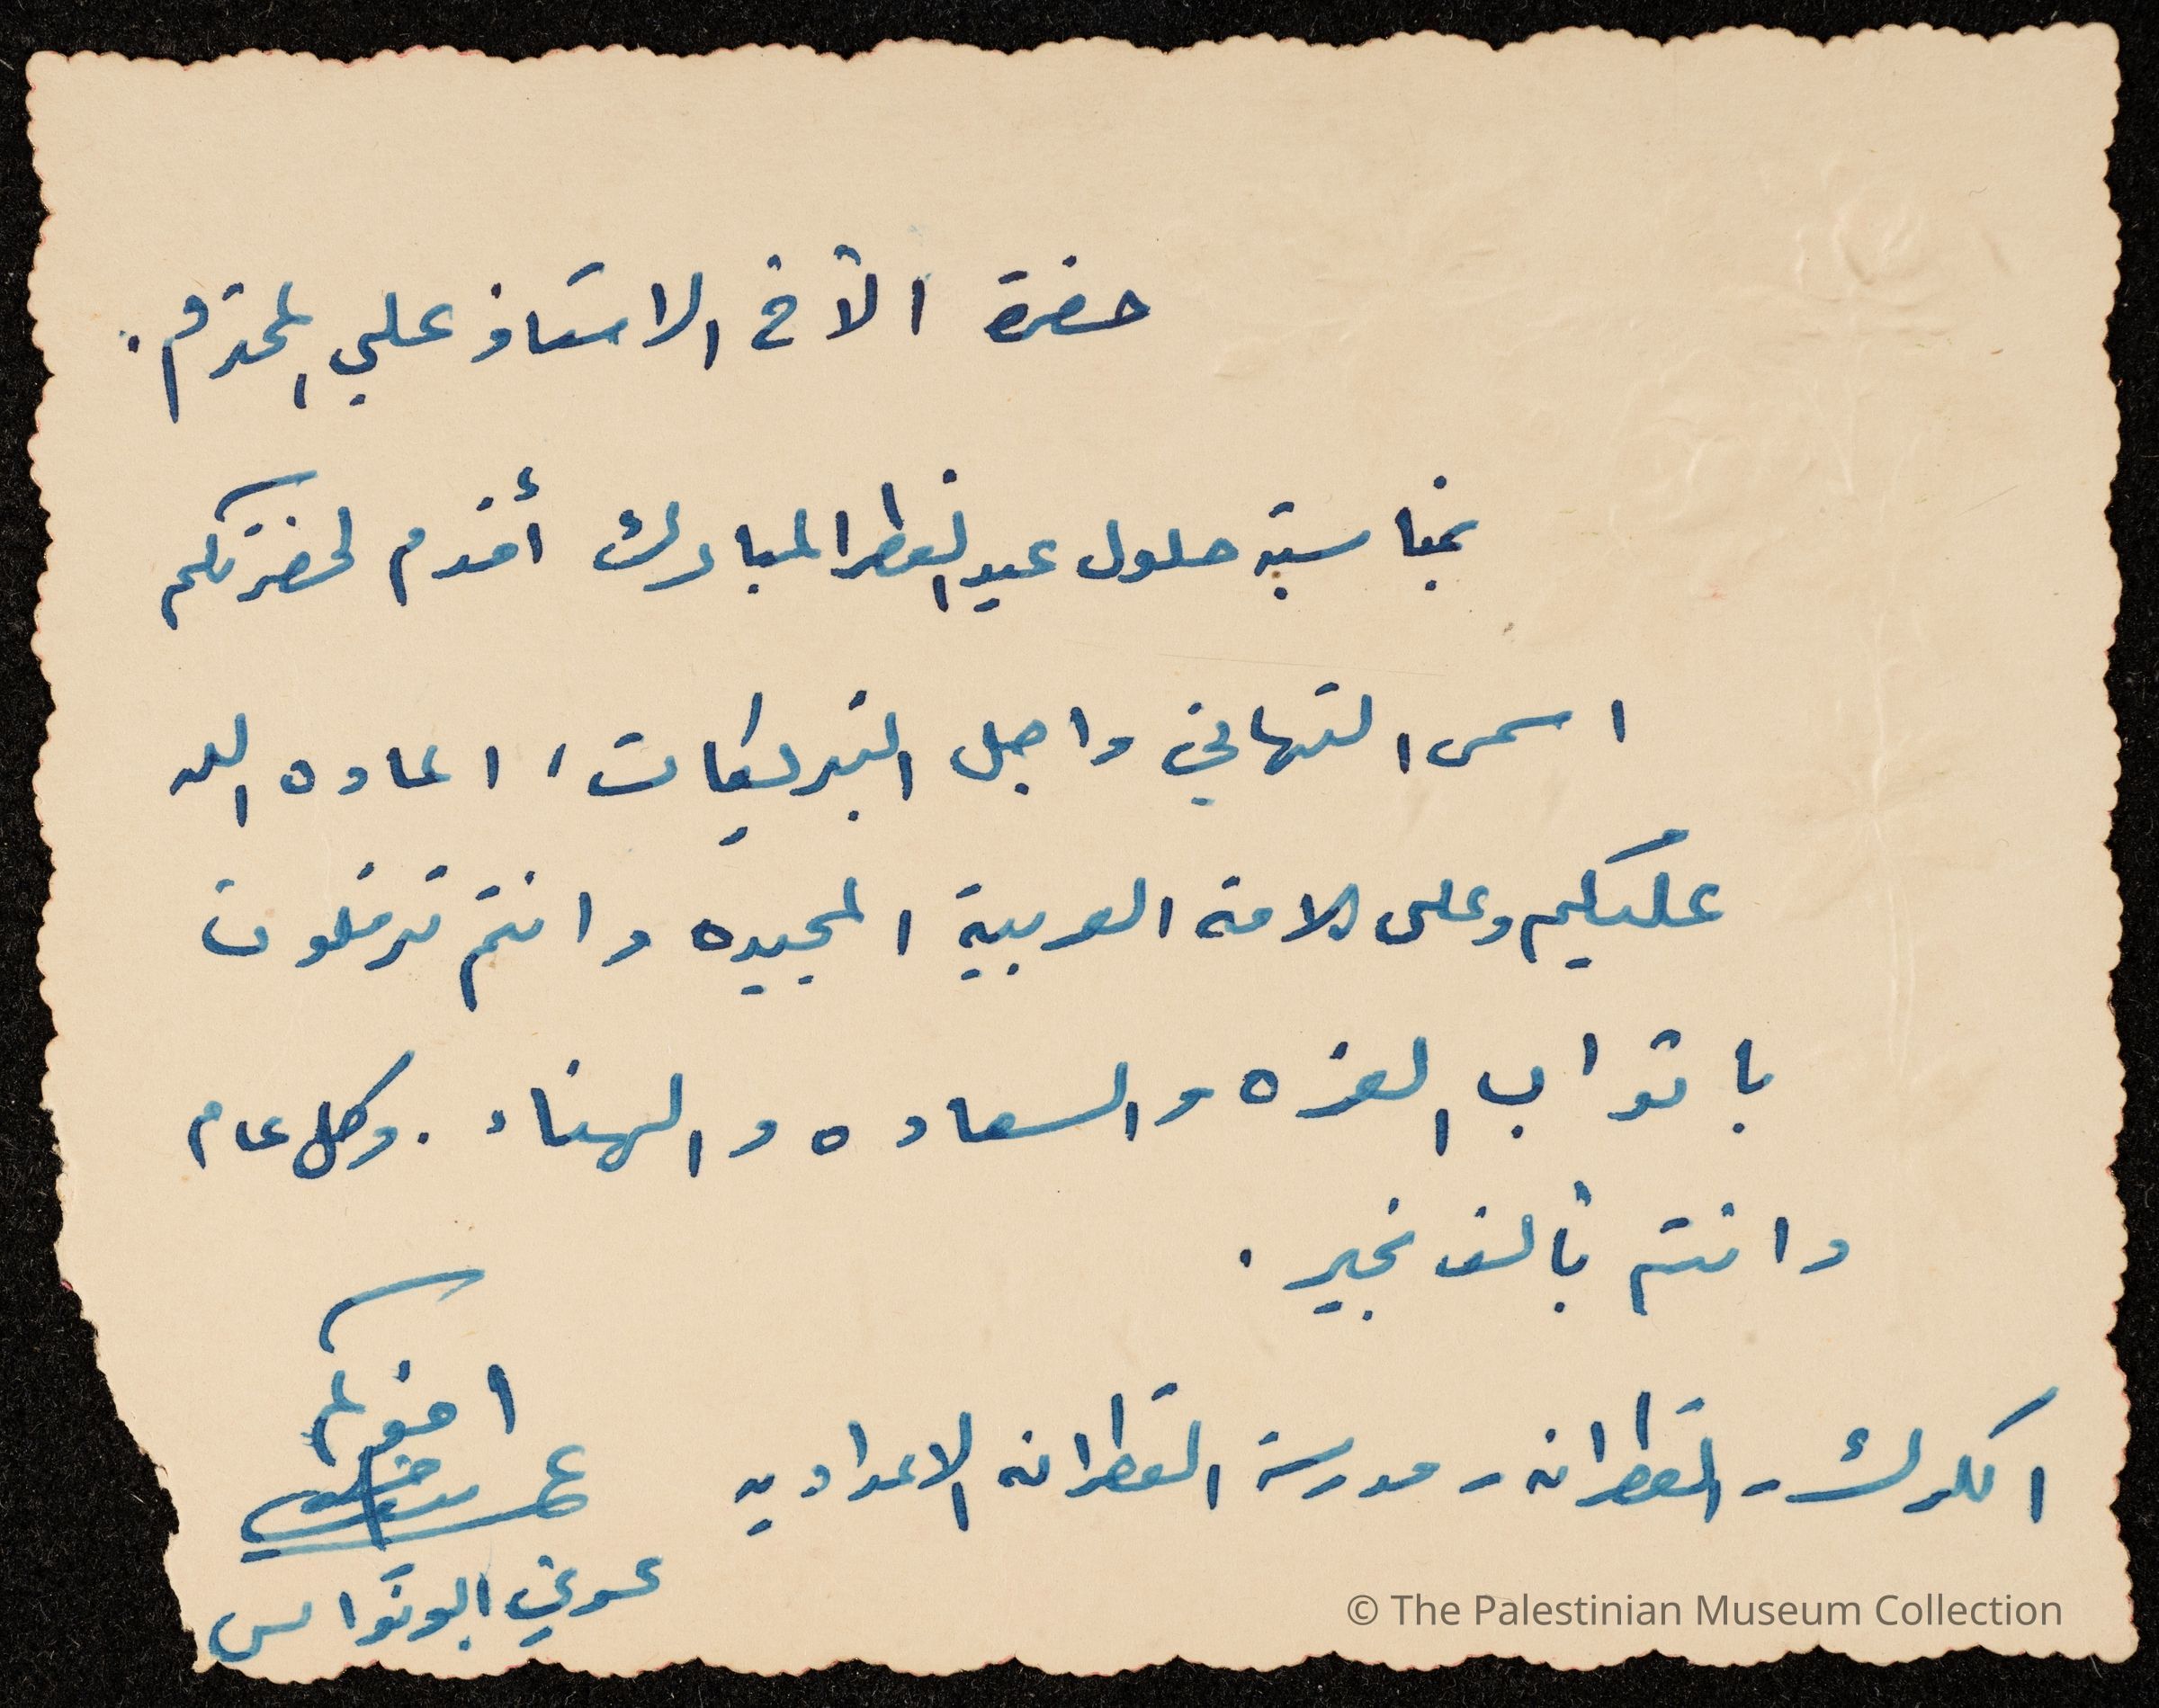 حضرة الأخ الاستاذ علي المحترم.
بمناسبة حلول عيد الفطر المبارك أقدم لحضرتكم
اسمى التهاني واجل التبريكات، اعاده الله
عليكم وعلى الامة العربية المجيده وانتم ترفلون
باثواب العزه والسعاده والهناء. وكل عام
وانتم بألف خير.
اخوكم
الكرك - القطرانه - مدرسة القطرانه الاعداديه
عوني ابونواس
© The Palestinian Museum Collection